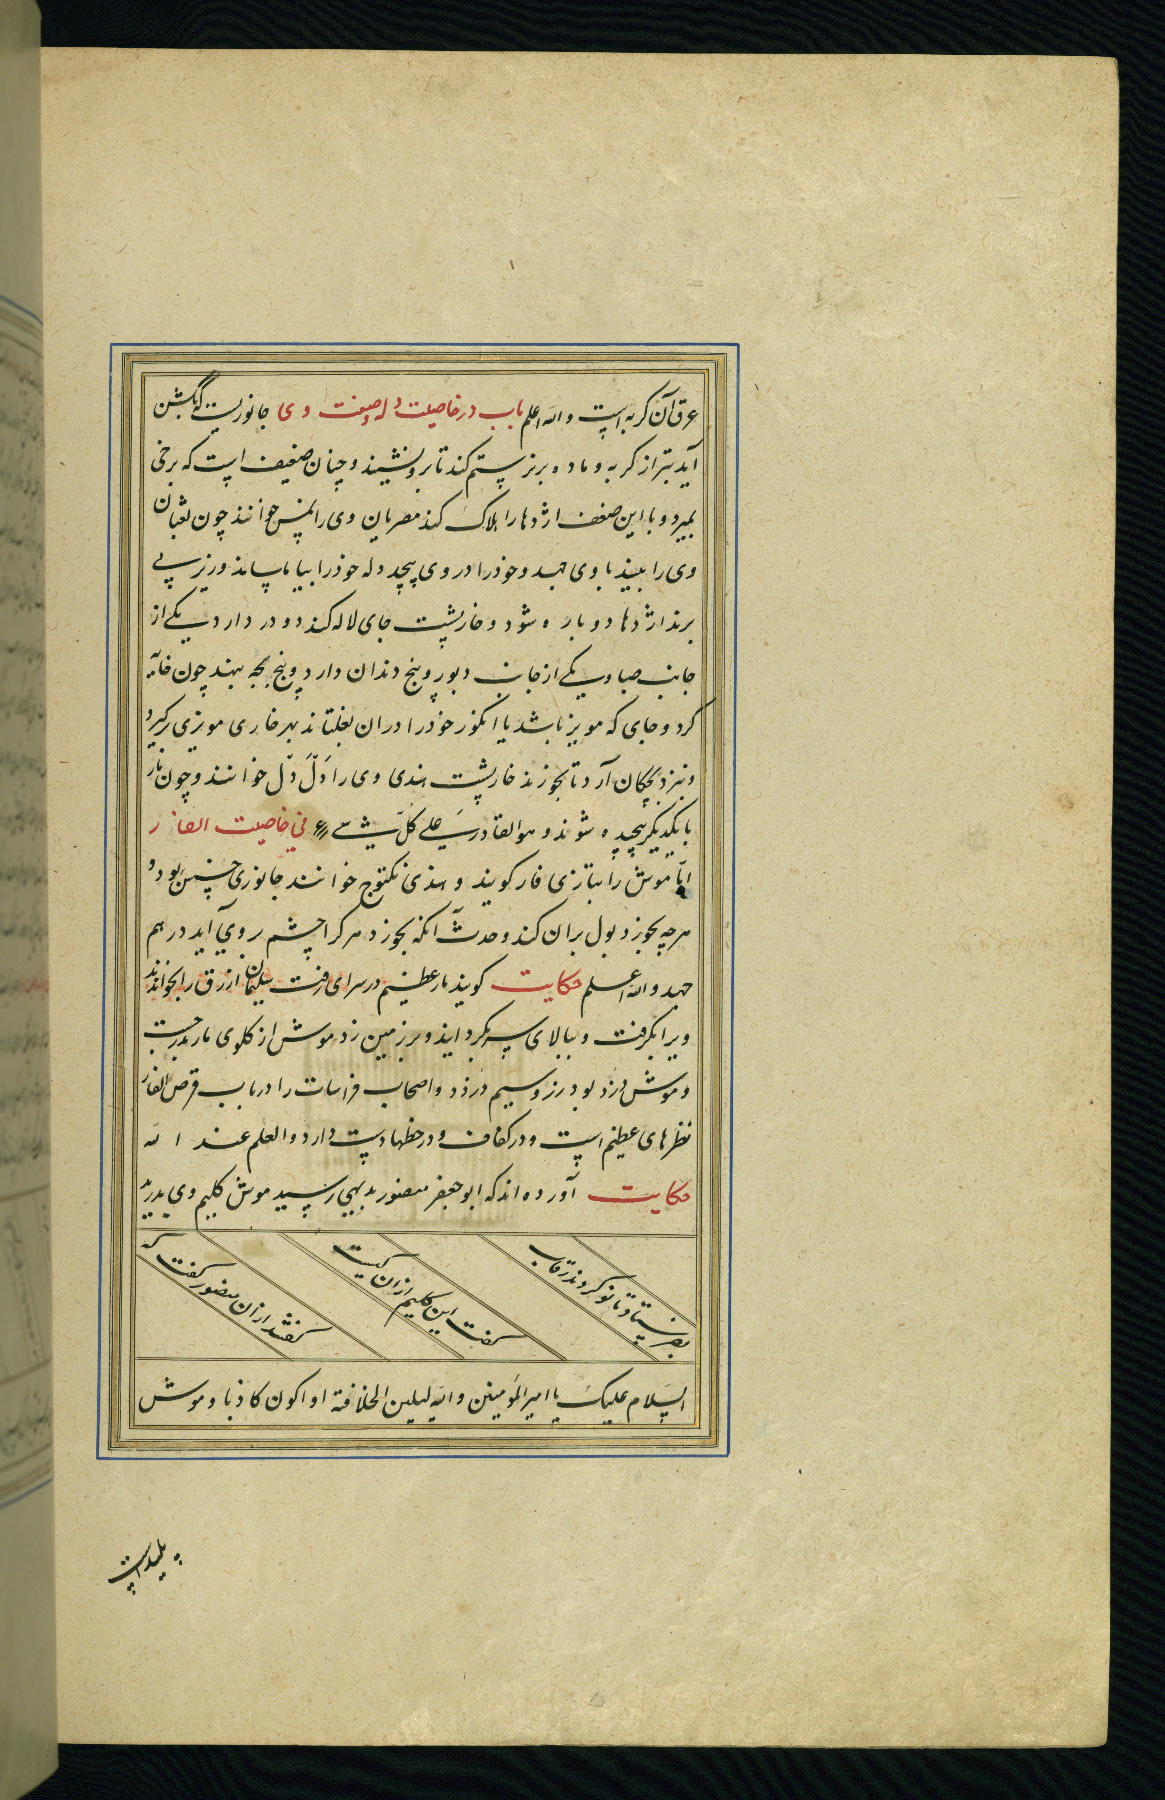 عرق آن کربه است والله اعلم باب در خاصیت دله وصفت وی جانوریست
آید بتر از کربه و ماده بر نر ستم کند تا برو نشیند و چنان ضعیف است که برخی
بمیرد و با این ضعف اژدها را هلاک کند مصریان وی را نمس خوانند چون ثعبان
وی را ببیند با وی جهد و خود را در وی پیچد دله خود را
برند اژدها دو پاره شود و خارپشت جای لاله کند دو در دارد یکی از
جانب صبا و یکی از جانب دبور و پنج دندان دارد و پنج بچه نهد چون
کرد و جای که مویز باشد یا انکور خود را در ان بغلتاند بهر خاری مویزی برکیرد
و نزد بچکان آرد تا بخورند خارپشت هندی وی را دلدل خوانند و چون
با یکدیکر پیچیده شوند و هو القادر علی کل شی فی خاصیت الفار
اما موش را بتازی فار کویند و هندی خوانند جانوری خسیس بود و
هرچه بخورد بول بران کند و حدث آنکه بخورد هر کرا چشم بر وی آید درهم
جهد والله اعلم حکایت کویند مار عظیم در سرای رفت سلیمان ازرق را بخواندند
ویرا بکرفت و ببالای سر بکردانید و بر زمین زد موش از کلوی مار بدر جست
و موش دزد بود زر و سیم دزدد و اصحاب فراسات را در باب قرض الفار
نظرهای عظیم است و در کفاف و در خطها دست دارد والعلم عند الله
حکایت آورده اند که ابو جعفر منصور بدیهی رسید موش کلیم وی بدرید
بفرستاد تا رفو کروند
کفت این کلیم ازان کیست
کفتند ازان منصور کفت که
السلام علیک یا امیر المومنین والله لیلین الخلافة او اکون کاذبا و موش
پلیدست